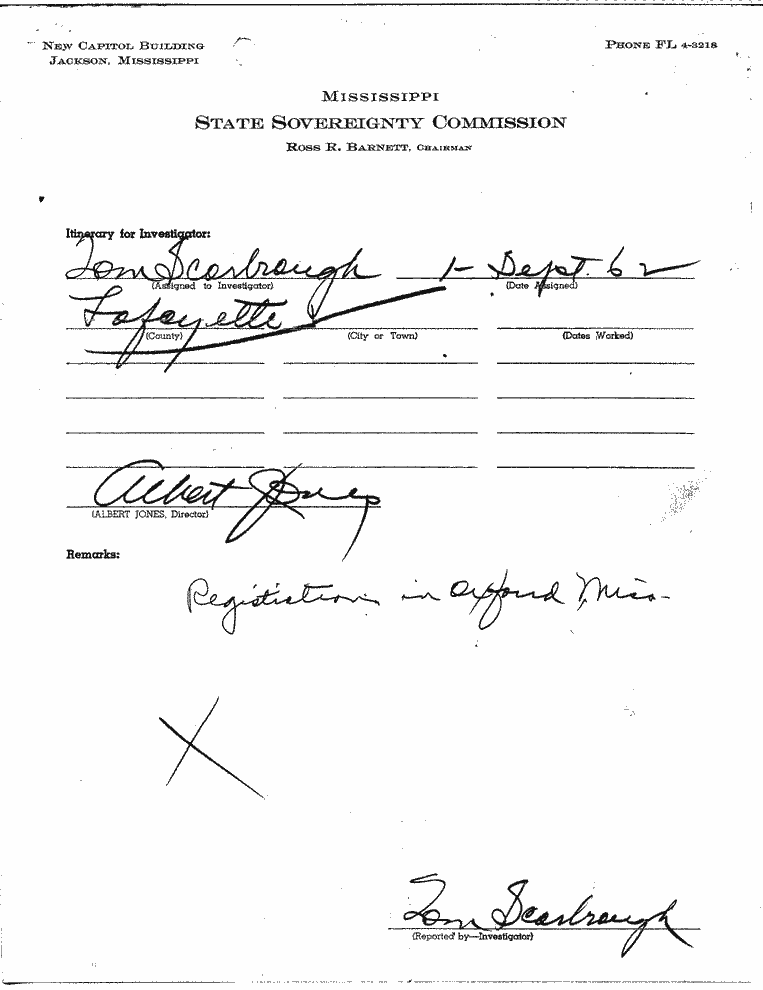 NEW CAPITOL BUILDING
JACKSON, MISSISSIPPI
PHONE FL 4-3218
MISSISSIPPI
STATE SOVEREIGNTY COMMISSION
ROSS R. BARNETT, CHAIRMAN
Itinerary for Investigator:
Tom Scarbrough 1- Sept. 62
(Assigned to Investigator) (Date Assigned)
Lafayette
(County) (City or Town) (Dates Worked)
Albert Jones
(ALBERT JONES, Director)
Remarks:
Registration in Oxford Miss.
Tom Scarbrough
(Reported by—Investigator)